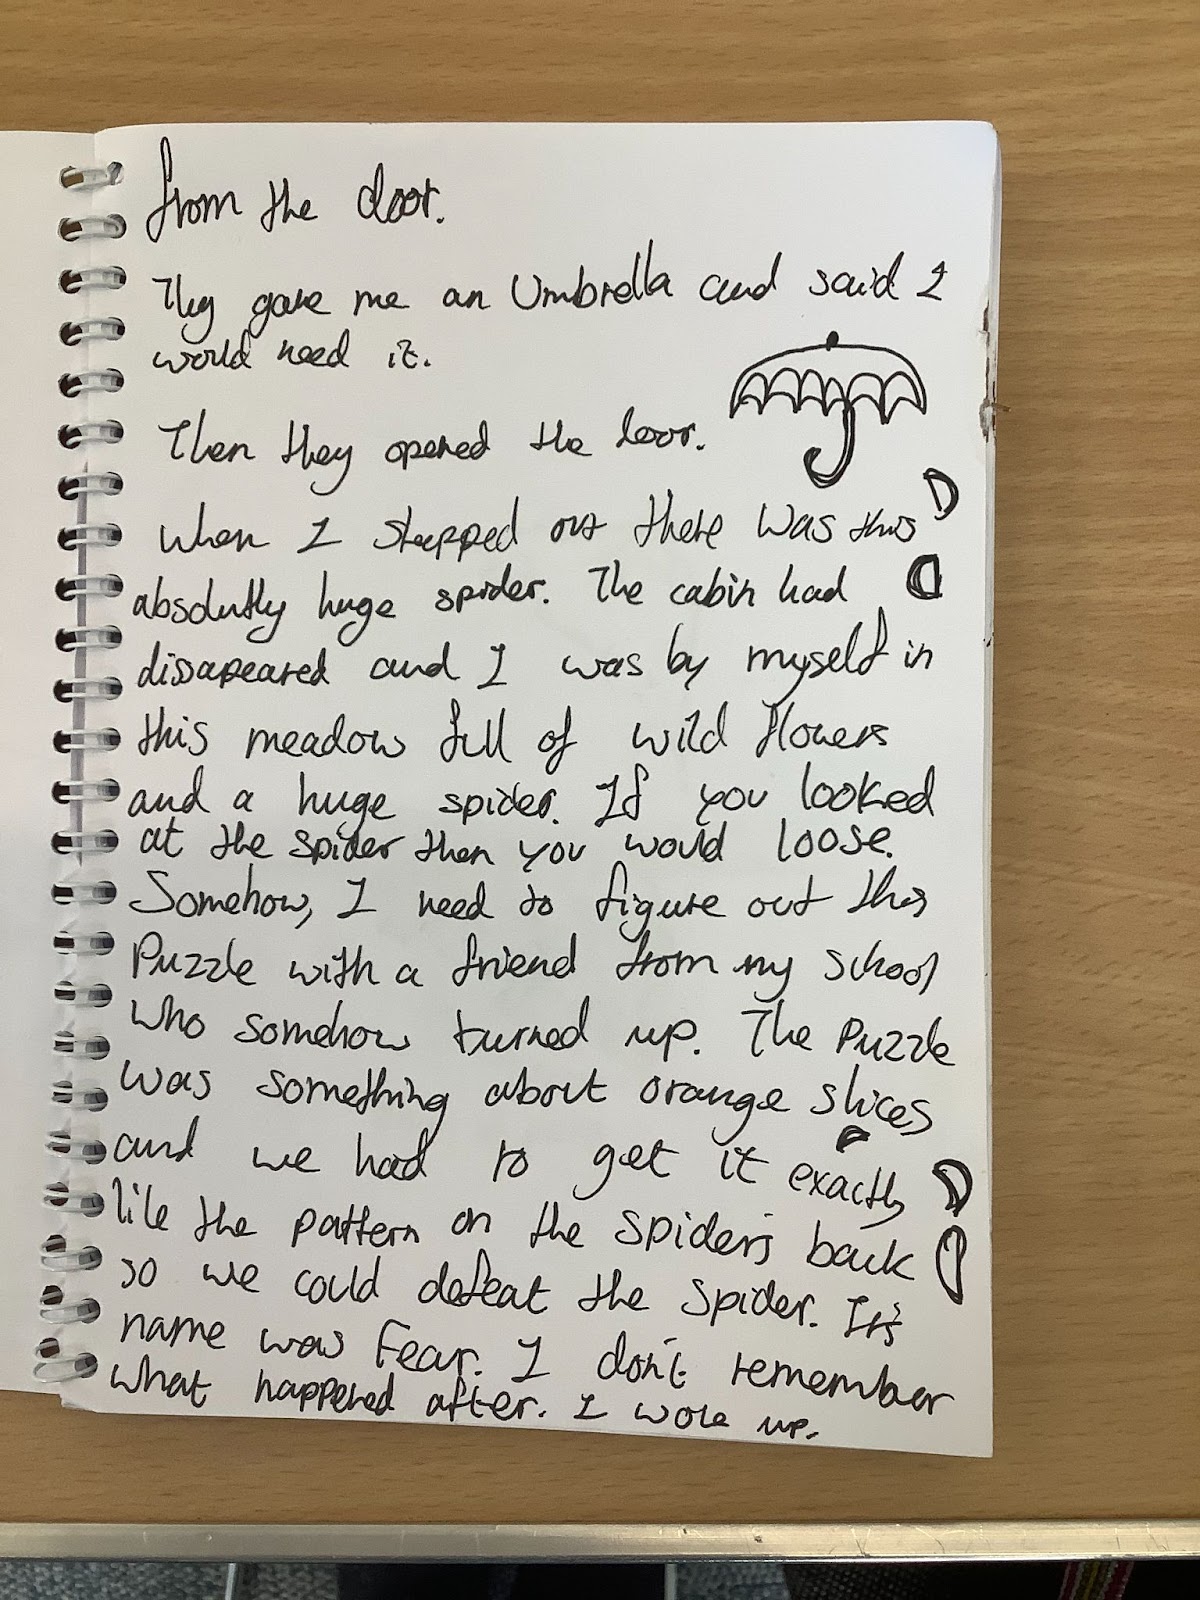 from the door.
They gave me an Umbrella and said I
would need it.
Then they opened the door.
When I stepped out there was this
absolutly huge spider. The cabin had
dissapeared and I was by myself in
this meadow full of wild flowers
and a huge spider. If you looked
at the spider then you would loose.
Somehow, I need to figure out this
Puzzle with a friend from my school
who somehow turned up. The Puzzle
was something about orange slices
and we had to get it exactly
like the pattern on the spider's back
so we could defeat the spider. It's
name was Fear. I don't remember
what happened after. I woke up.